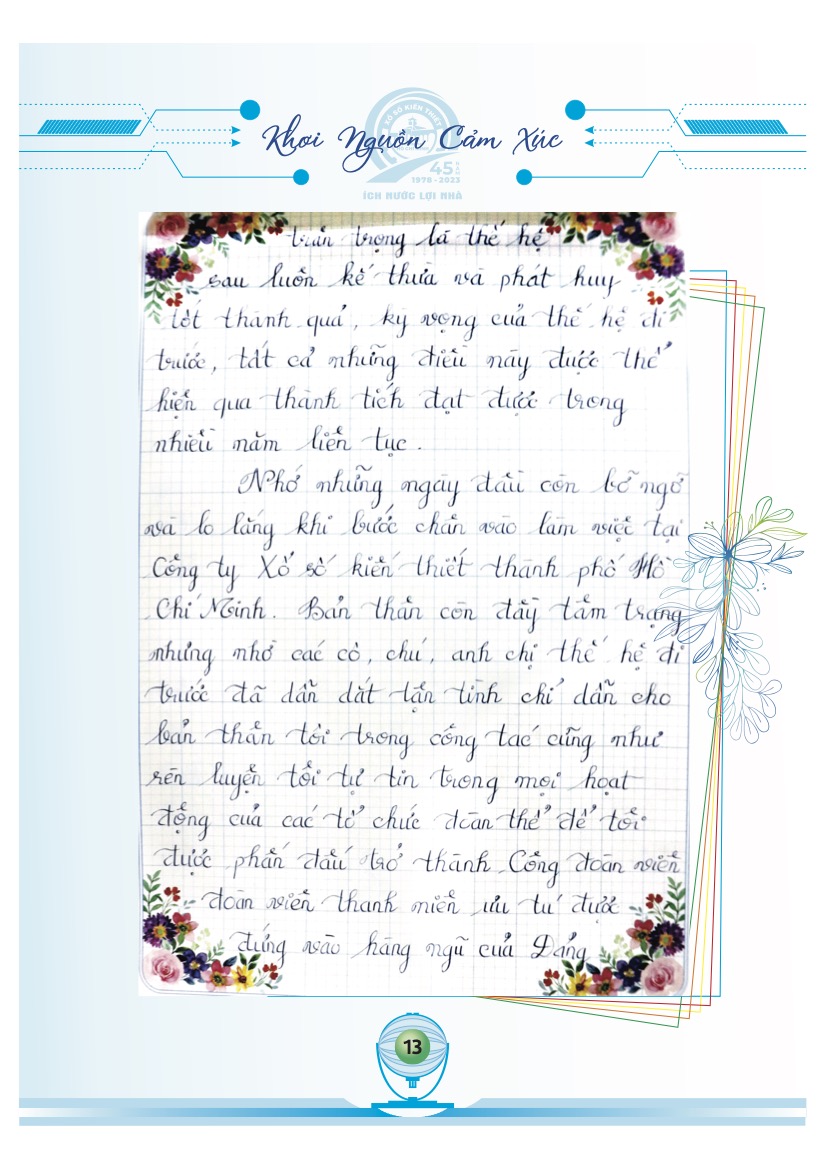 XỔ SỐ KIẾN THIẾT
Khơi Nguồn Cảm Xúc
45 NĂM
1978 - 2023
ÍCH NƯỚC LỢI NHÀ
trân trọng là thế hệ
sau luôn kế thừa và phát huy
tốt thành quả, kỳ vọng của thế hệ đi
trước, tất cả những điều này được thể
hiện qua thành tích đạt được trong
nhiều năm liên tục.
Nhớ những ngày đầu còn bỡ ngỡ
và lo lắng khi bước chân vào làm việc tại
Công ty Xổ số kiến thiết thành phố Hồ
Chí Minh. Bản thân còn đầy tâm trạng
nhưng nhờ các cô, chú, anh chị thế hệ đi
trước đã dẫn dắt tận tình chỉ dẫn cho
bản thân tôi trong công tác cũng như
rèn luyện tôi tự tin trong mọi hoạt
động của các tổ chức đoàn thể để tôi
được phấn đấu trở thành Công đoàn viên
đoàn viên thanh niên ưu tú được
đứng vào hàng ngũ của Đảng
13